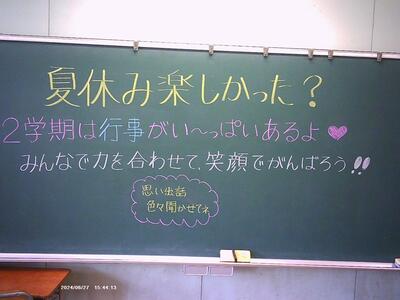 夏休み楽しかった？
2学期は行事がい〜っぱいあるよ♥
みんなで力を合わせて、笑顔でがんばろう!!
思い出話
色々聞かせてネ
2024/08/27 15:44:13